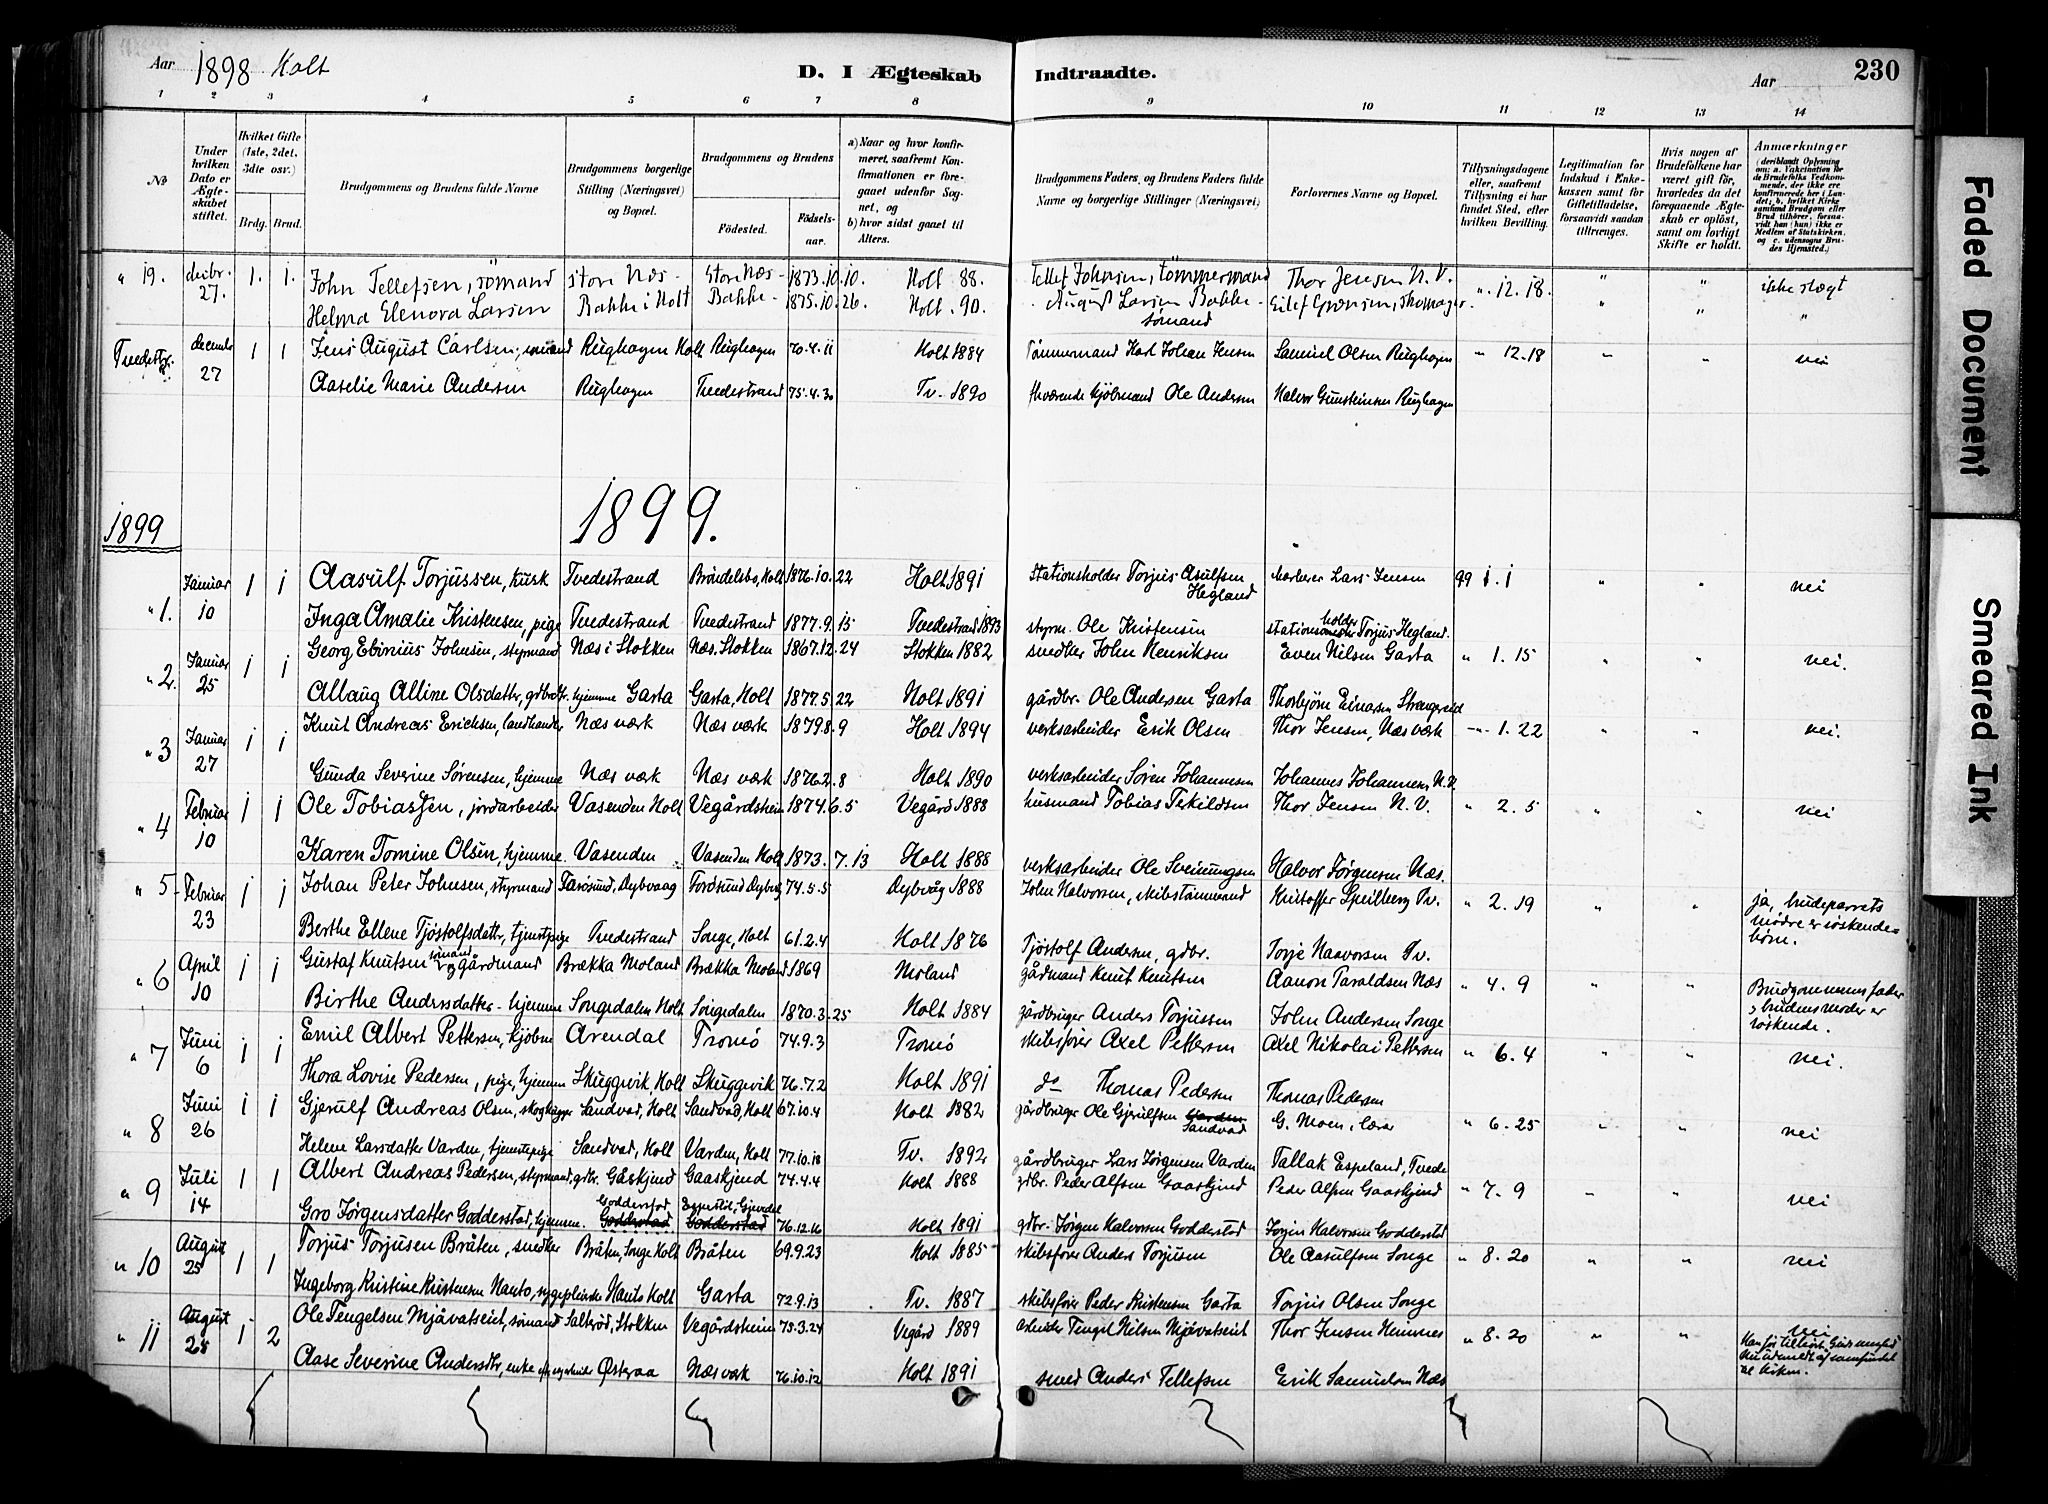 Aar 1898 Holt
D. I Ægteskab Indtraadte.
Aar
230
1 2 3 4 5 6 7 8 9 10 11 12 13 14
No
Under hvilken Dato er Ægteskabet stiftet.
Hvilket Gifte (1ste, 2det, 3die osv.)
Brdg. Brud.
Brudgommens og Brudens fulde Navne
Brudgommens borgerlige Stilling (Næringsvei) og Bopæl.
Brudgommens og Brudens
Födested.
Födselsaar.
a) Naar og hvor konfirmeret, saafremt Konfirmationen er foregaaet udenfor Sognet, og
b) hvor sidst gaaet til Alters.
Brudgommens Faders og Brudens Faders fulde Navne og borgerlige Stillinger (Næringsvei)
Forlovernes Navne og Bopæl.
Tillysningsdagene eller, saafremt Tillysning ei har fundet Sted, efter hvilken Bevilling.
Legitimation for Indskud i Enkekassen samt for Giftetilladelse, forsaavidt saadan tiltrænges.
Hvis nogen af Brudefolkene har været gift för, hvorledes da det foregaaende Ægteskab er oplöst, samt om lovligt Skifte er holdt.
Anmærkninger
(deriblandt Oplysning om: a. Vakcination for de Brudefolks Vedkommende, der ikke ere konfirmerede her i Landet; b. hvilket Kirkesamfund Brudgom eller Brud tilhörer, forsaavidt han (hun) ikke er Medlem af Statskirken, og c. udensogns Brudes Hjemsted.)
" 19. decbr. 27. 1. 1. John Tellefsen, sömand store Næs - Store Næs - 1873.10.10. Holt 88. Tellef Johnsen, tömmermand Thor Jensen N. V. " 12.18. " " ikke slægt
Helma Elenora Larsen Bakke i Holt Bakke - 1875.10.26. Holt. 90. August Larsen Bakke - sömand " " "
Tvedestr. decembr 27 1 1 Jens August Carlsen, sömand Rughagen Holt Rughagen 70.4.11 Holt 1884 Tømmermand Karl Johan Jensen Samuel Olsen Rughagen " 12.18 " " nei
Aaselie Marie Andersen Rughagen Tvedestrand 75.4.30 Tv. 1890 fhværende kjöbmand Ole Andersen Halvor Gunsteinsen Rughagen
1899 1899.
" 1. Januar 10 1 1 Aasulf Torjussen, kusk Tvedestrand Bröndelsbo, Holt 1876.10.22 Holt 1891 Stationsholder Torjus Asulfsen Hegland Lars Jensen 99 1.1 " " nei
Inga Amalie Kristensen, pige Tvedestrand Tvedestrand 1877.9.15 Tvedestrand 1893 styrm. Ole Kristensen stationsholder Torjus Hegland.
" 2. Januar 25 1 1 Georg Ebinius Johnsen, styrmand Næs i Stokken Næs, Stokken 1867.12.24 Stokken 1882 snedker John Henriksen Even Nilsen Garta " 1.15 " " nei.
Allaug Alline Olsdattr, gdbrdtr. hjemme Garta Garta, Holt 1877.5.22 Holt 1891 gårdbr. Ole Andersen Garta Thorbjörn Einarsen Strengereid
" 3 Januar 27 1 1 Knut Andreas Erichsen, landhandler Næs værk Næs værk 1879.8.9 Holt 1894 verksarbeider Erik Olsen Thor Jensen, Næs værk -"- 1.22 " " nei.
Gunda Severine Sörensen, hjemme Næs værk Næs værk 1876.2.8 Holt 1890 verksarbeider Sören Johannesen Johannes Johannesen N.V.
" 4 Februar 10 1 1 Ole Tobiassen, jordarbeider Vasenden Holt Vegårdsheim 1874.6.5 Vegård 1888 husmand Tobias Terkildsen Thor Jensen N. V. " 2.5 " " nei
Karen Tomine Olsen, hjemme. Vasenden " Vasenden Holt 1873.7.13 Holt 1888 verksarbeider Ole Sveinungsen Halvor Jörgensen Næs.
" 5 Februar 23 1 1 Johan Peter Johnsen, styrmand Farösund, Dybvaag Farösund Dybvåg 74.5.5 Dybvåg 1888 John Halvorsen, skibstömmermand Kristoffer Speilberg Tv. " 2.19 " " ja, brudeparrets mödre er söskendebörn.
Berthe Ellene Tjöstolfsdattr, tjenestpige Tvedestrand Songe, Holt 61.2.4 Holt 1876 Tjöstolf Andersen, gdbr. Torje Haavorsen Tv.
" 6 April 10 1 1 Gustaf Knutsen sömand og gårdmand Brækka Moland Brækka Moland 1869 Moland gårdmand Knut Knutsen Aanon Taraldsen Næs " 4.9 " " Brudgommens fader og brudens moder er söskende.
Birthe Andersdatter - hjemme Songedalen Holt Songedalen 1870.3.25 Holt 1884 gårdbruger Anders Torjussen John Andersen Songe
" 7 Juni 6 1 1 Emil Albert Pettersen, kjöbm Arendal Tromö 74.9.3 Tromö skibsförer Axel Pettersen Axel Nikolai Pettersen " 6.4 " " nei.
Thora Lovise Pedersen, pige, hjemme Skuggevik Holt Skuggevik 76.7.2 Holt 1891 do Thomas Pedersen Thomas Pedersen
" 8 Juni 26 1 1 Gjerulf Andreas Olsen, skoghugger Sandvad, Holt Sandvad, Holt 67.10.4 Holt 1882 gårdbruger Ole Gjerulfsen Sandvad G. Moen, lærer " 6.25 " " nei
Helene Larsdatter Varden, tjenestepige Sandvad, Holt Varden, Holt 77.10.18 Tv. 1892 gårdbruger Lars Jörgensen Varden Tallak Espeland, Tvede
" 9 Juli 14 1 1 Albert Andreas Pedersen, styrmand, gdbr. Gåskjend Gaaskjend 74.4.4 Holt 1888 gdbr. Peder Alfsen Gaaskjend Peder Alfsen Gaaskjend " 7.9 " " nei
Gro Jörgensdatter Godderstad, hjemme. Godderstad Godderstad 76.12.16 Holt 1891 gdbr. Jörgen Halvorsen Godderstad Jörgen Halvorsen Godderstad
" 10 August 25 1 1 Torjus Torjusen Bråten, snedker Bråten, Songe Holt Bråten 69.9.23 Holt 1885 skibsförer Anders Torjusen Ole Aasulfsen Songe " 8.20 " " nei
Ingeborg Kristine Kristensen Hauto, sygepleierske Hauto Holt Garta 72.9.13 Tv. 1887 skibsförer Peder Kristensen Garta Torjus Olsen Songe
" 11 August 25 1 2 Ole Tengelsen Mjåvatseint, sömand Saltröd, Stokken Vegårdsheim 75.3.24 Vegård 1889 arbeider Tengel Nilsen Mjåvatseint Thor Jensen Heimnes " 8.20 " " nei
Aase Severine Andersdtr, enke Österaa Næs værk 76.10.12 Holt 1891 smed Anders Tellefsen Erik Samuelsen Næs
Faded Document
Smeared Ink